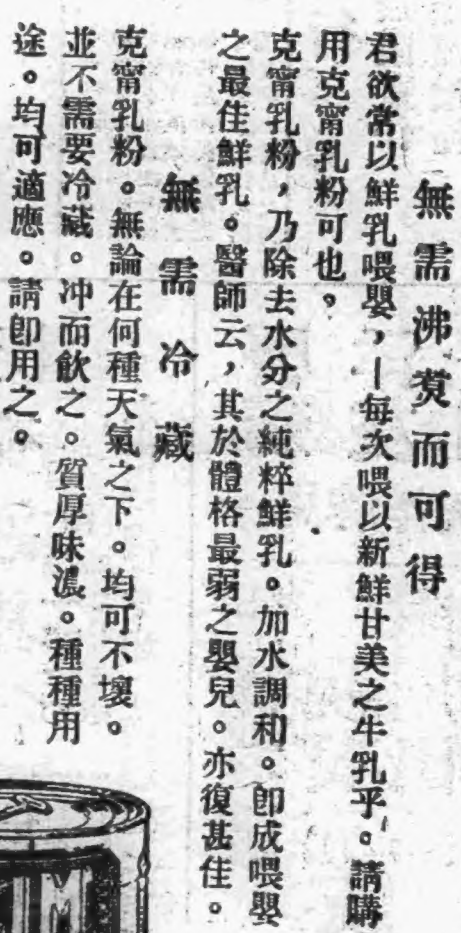 無需沸煑而可得
君欲常以鮮乳喂嬰，—每次喂以新鮮甘美之牛乳乎。請購
用克甯乳粉可也。
克甯乳粉，乃除去水分之純粹鮮乳。加水調和。卽成喂嬰
之最佳鮮乳。醫師云，其於體格最弱之嬰兒。亦復甚佳。
無需冷藏
克甯乳粉。無論在何種天氣之下。均可不壞。
並不需要冷藏。冲而飲之。質厚味濃。種種用
途。均可適應。請卽用之。